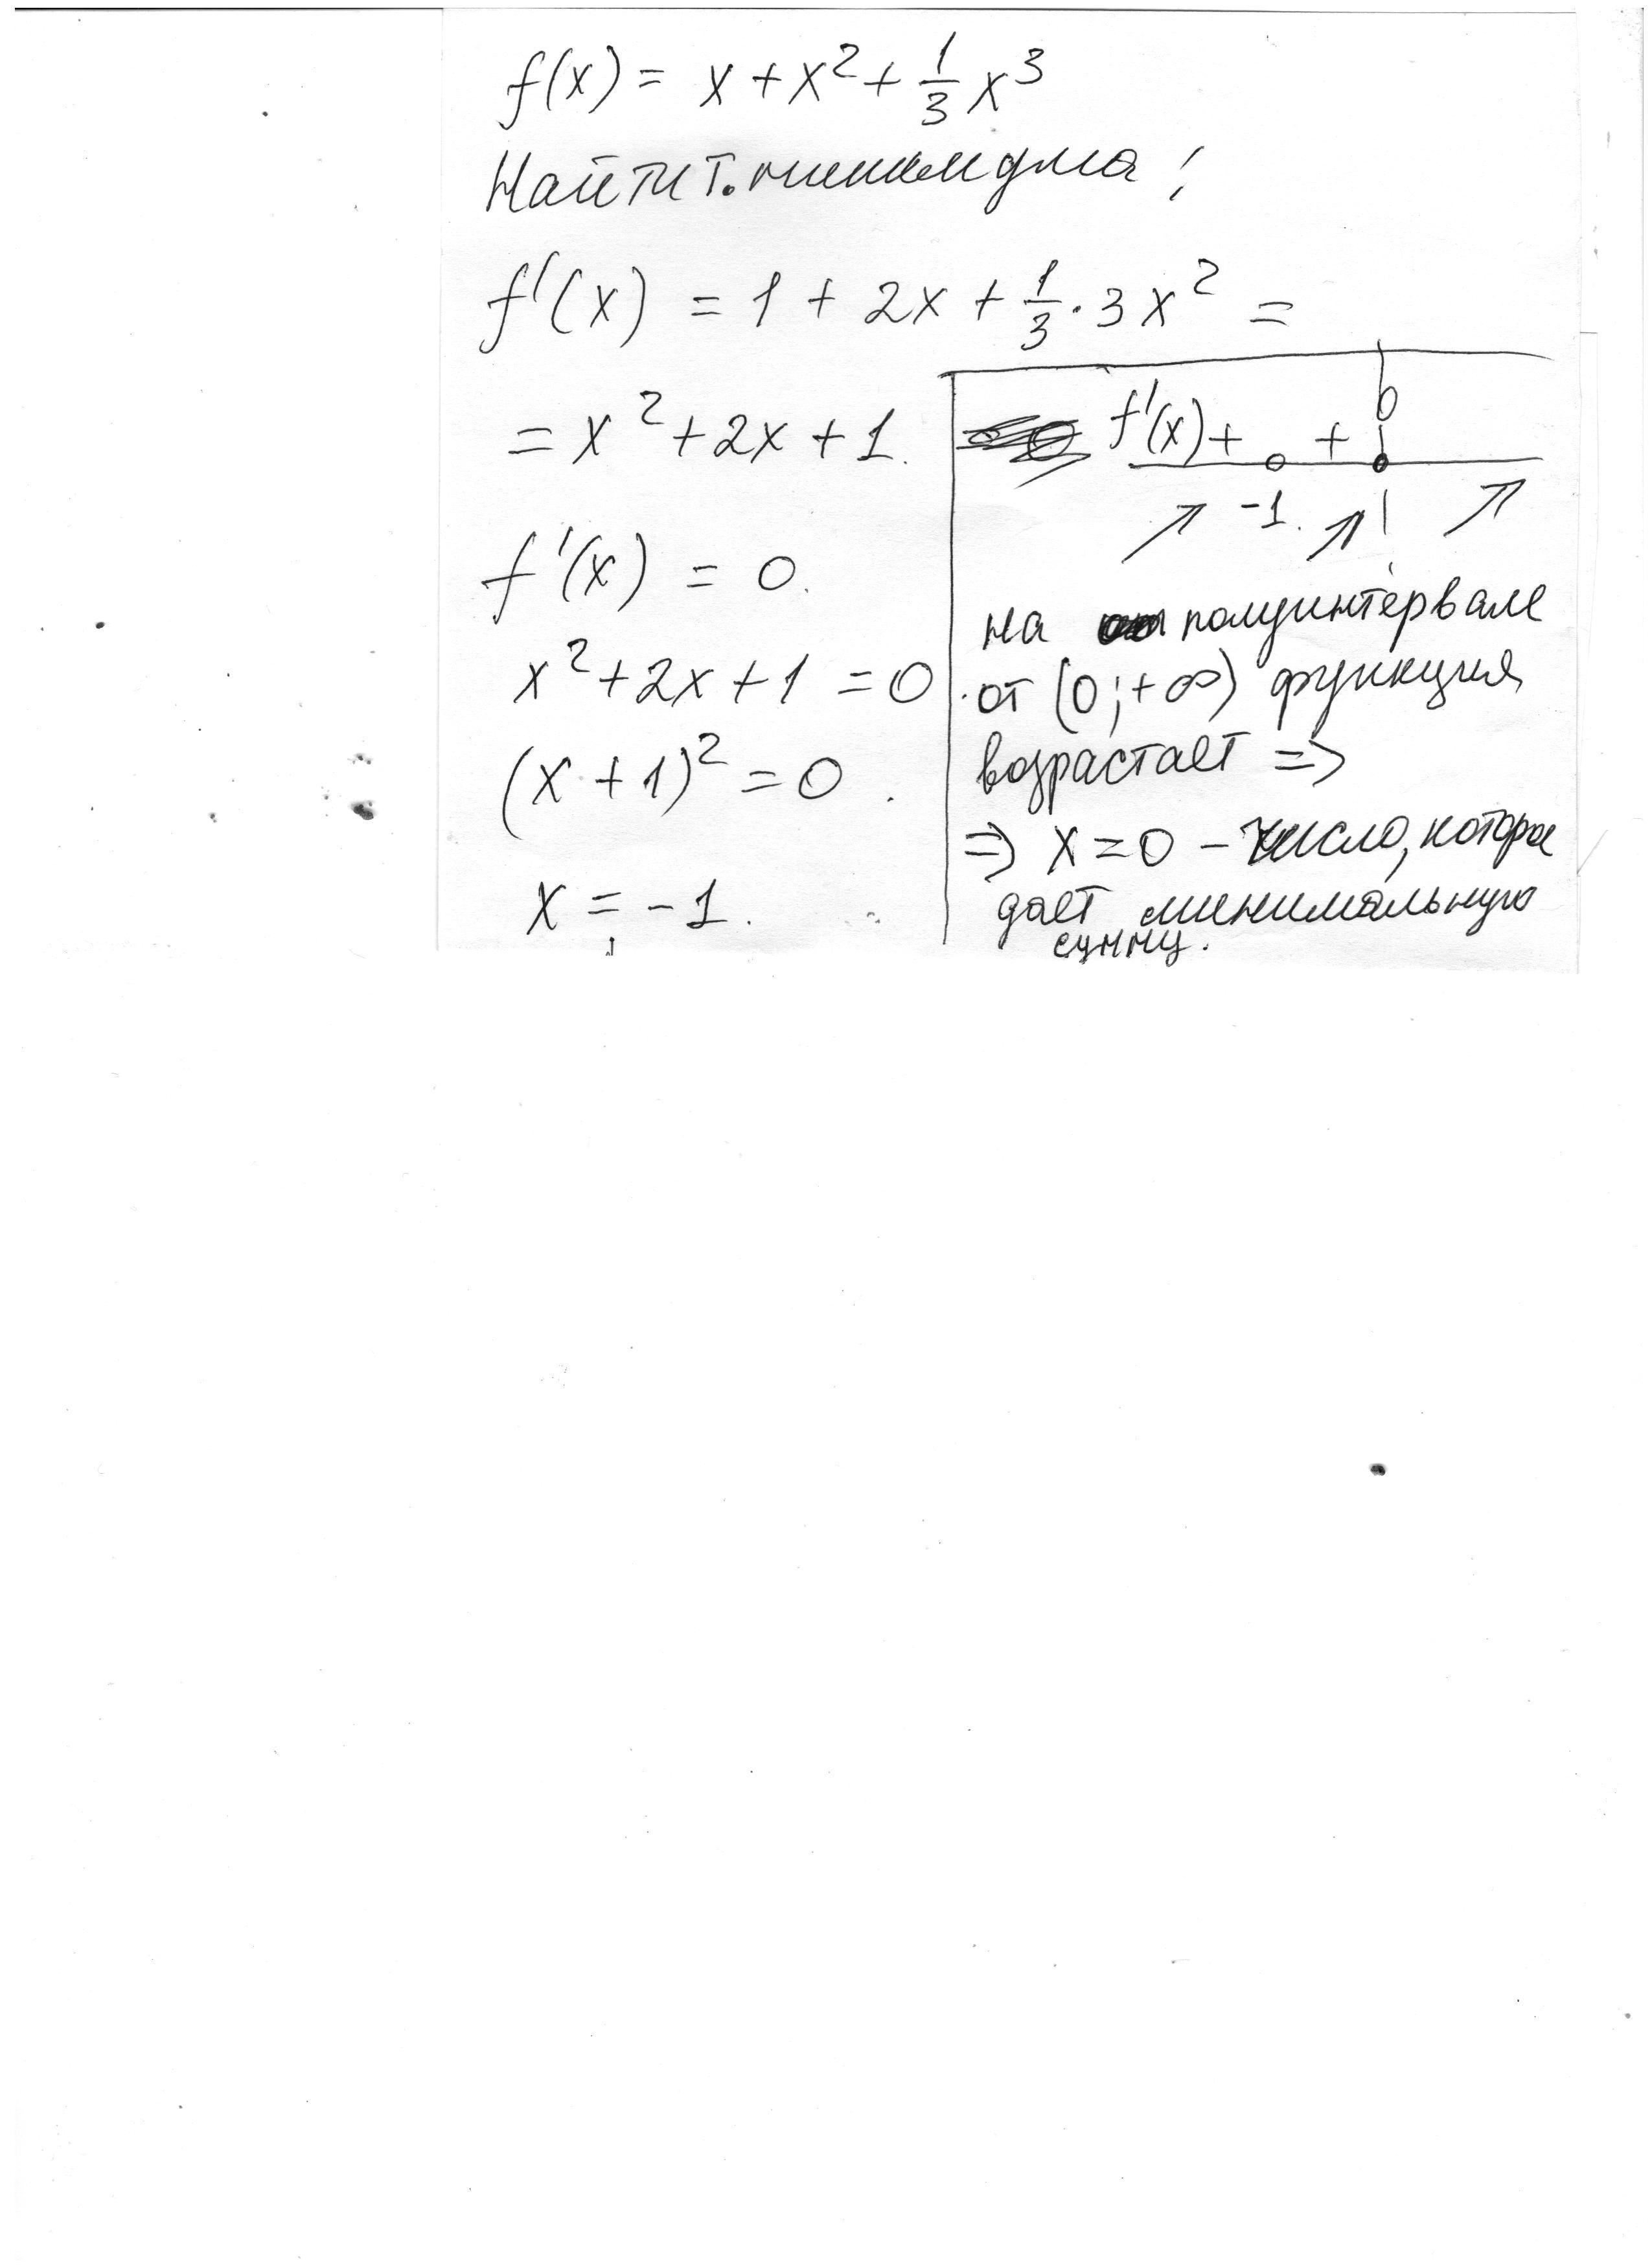 f(x) = x + x² + 1/3 x³
Найти т. минимума!
f'(x) = 1 + 2x + 1/3 · 3x² =
= x² + 2x + 1.
f'(x) = 0.
x² + 2x + 1 = 0
(x + 1)² = 0.
x = -1.
f'(x) + + 0
-1.
на полуинтервале
от (0; +∞) функция
возрастает =>
=> x = 0 - число, которое
дает минимальную
сумму.